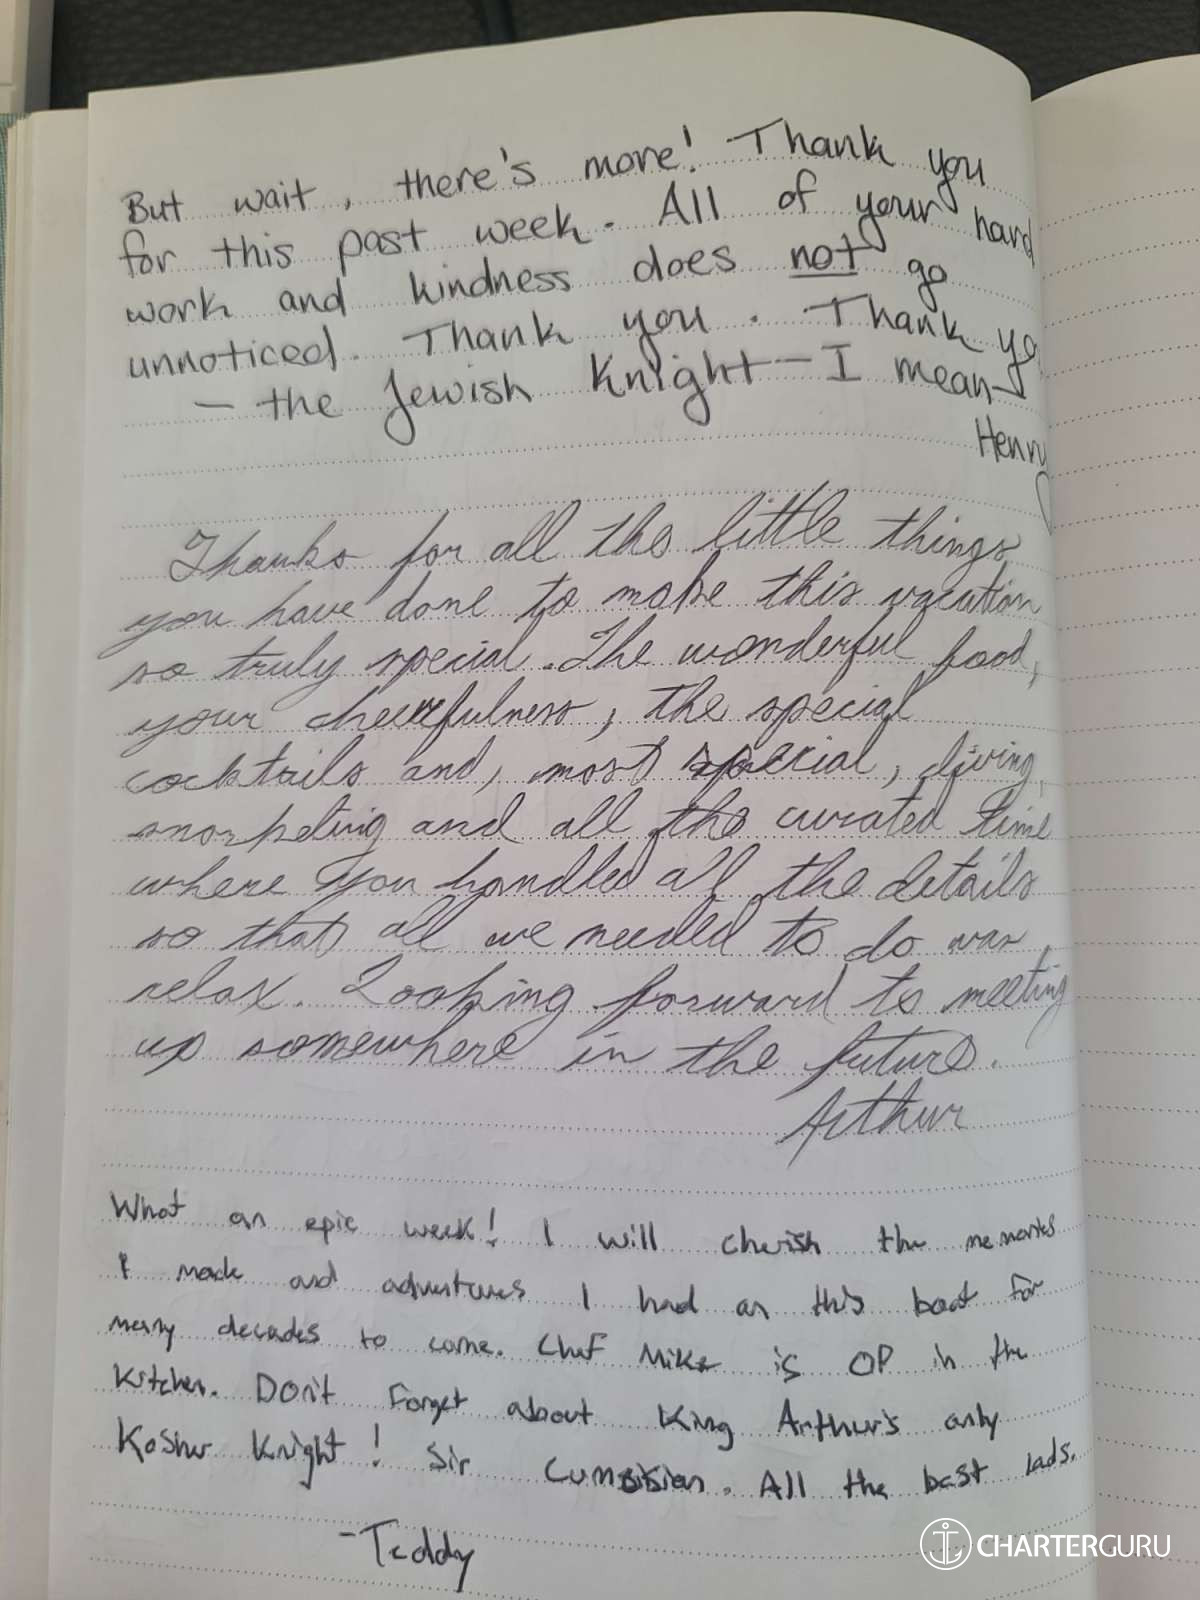 But wait, there's more! Thank you
for this past week. All of your hard
work and kindness does not go
unnoticed. Thank you. Thank yo
— the Jewish Knight — I mean
Henry
Thanks for all the little things
you have done to make this vacation
so truly special. The wonderful food,
your cheerfulness, the special
cocktails and, most special, diving,
snorkeling and all the curated time
where you handled all the details
so that all we needed to do was
relax. Looking forward to meeting
up somewhere in the future.
Arthur
What an epic week! I will cherish the memories
I made and adventures I had on this boat for
many decades to come. Chef Mike is OP in the
Kitchen. Don't forget about King Arthur's only
Kosher Knight! Sir . All the best lads.
-Teddy
CHARTERGURU